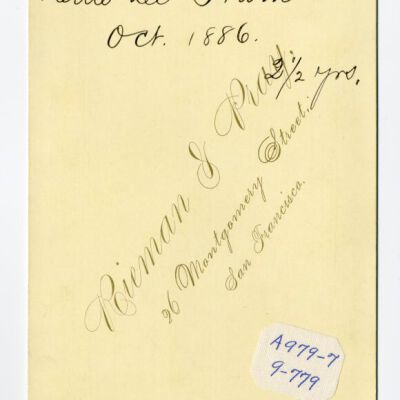 Oct. 1886.
2 1/2 yrs.
Rieman & Pray,
26 Montgomery Street,
San Francisco.
A979-7
9-779